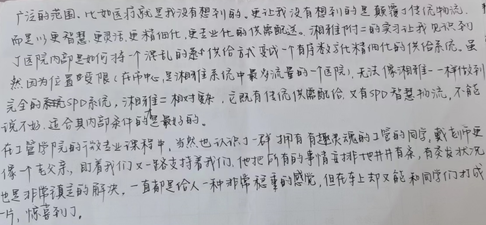 广泛的范围、比如医药就是我没有想到的。更让我没有想到的是颠覆了传统物流,
而是以更智慧、更灵活、更精细化、更专业化的供需配送。湘雅附二的实习让我见识到
了医院内部是如何将一个混乱的 供给方式变成一个有序者交化精细化的供给系统。虽
然因为位置的受限(在市中心,是湘雅系统中最为流量的一个医院),无法像湘雅一一样做到
完全的系统SPD系统,湘雅二相对复杂,它既有传统供需配给,又有SPD智慧物流,不能
说不好,适合其内部条件的是最好的。
在工管学院的行业课程中,当然也认识了一群拥有有趣灵魂的工管的同学,戴老师更
像一个老父亲,盯着我们又一路支持着我们,他把所有的事情安排地井井有条,有突发状况
也是非常镇定的解决,一直都是给人一种非常稳重的感觉,但在车上却又能和同学们打成
一片,惊喜到了。